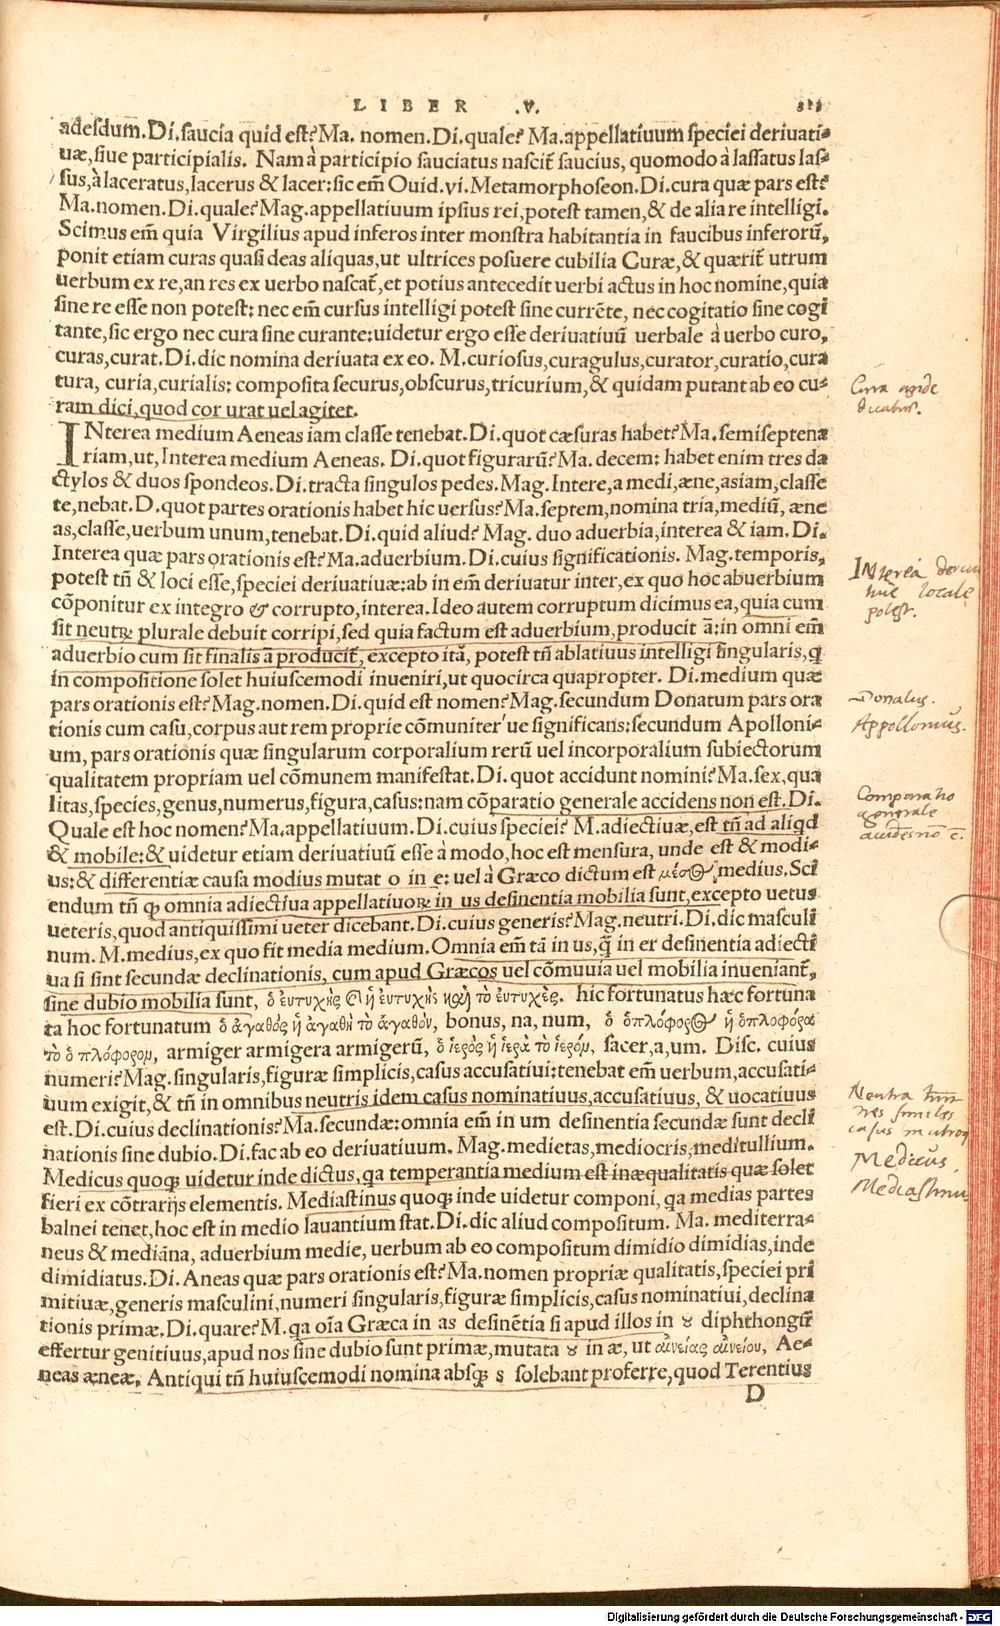 LIBER .V.
adesdum.Di.saucia quid est? Ma. nomen.Di.quale? Ma.appellatiuum speciei deriuati=
uæ,siue participialis. Nam à participio sauciatus nascit̃ saucius, quomodo à lassatus las=
sus,à laceratus,lacerus & lacer:sic em̃ Ouid.vi.Metamorphoseon.Di.cura quæ pars est?
Ma.nomen.Di.quale? Mag.appellatiuum ipsius rei,potest tamen,& de alia re intelligi.
Scimus em̃ quia Virgilius apud inferos inter monstra habitantia in faucibus inferorũ,
ponit etiam curas quasi deas aliquas,ut ultrices posuere cubilia Curæ,& quærit̃ utrum
uerbum ex re,an res ex uerbo nascat̃,et potius antecedit uerbi actus in hoc nomine,quia
sine re esse non potest: nec em̃ cursus intelligi potest sine currẽte, nec cogitatio sine cogi
tante,sic ergo nec cura sine curante:uidetur ergo esse deriuatiuũ uerbale à uerbo curo,
curas,curat.Di.dic nomina deriuata ex eo. M.curiosus,curagulus,curator,curatio,cura
tura, curia,curialis: composita securus,obscurus,tricurium,& quidam putant ab eo cu=
ram dici,quod cor urat uel agitet.
Cura unde
dicatur.
INterea medium Aeneas iam classe tenebat.Di.quot cæsuras habet? Ma.semiseptena
riam,ut,Interea medium Aeneas. Di.quot figurarũ? Ma. decem: habet enim tres da
ctylos & duos spondeos.Di.tracta singulos pedes.Mag.Intere,a medi,æne,asiam,classe
te,nebat.D.quot partes orationis habet hic uersus? Ma.septem,nomina tria,mediũ, æne
as,classe,uerbum unum,tenebat.Di.quid aliud? Mag. duo aduerbia,interea & iam. Di.
Interea quæ pars orationis est? Ma.aduerbium.Di.cuius significationis. Mag.temporis,
potest tñ & loci esse,speciei deriuatiuæ:ab in em̃ deriuatur inter,ex quo hoc abuerbium
cõponitur ex integro & corrupto,interea.Ideo autem corruptum dicimus ea,quia cum
sit neutrꝝ plurale debuit corripi,sed quia factum est aduerbium,producit ā:in omni em̃
aduerbio cum sit finalis ā producit̃, excepto itã, potest tñ ablatiuus intelligi singularis,ꝙ
in compositione solet huiuscemodi inueniri,ut quocirca quapropter. Di.medium quæ
pars orationis est? Mag.nomen.Di.quid est nomen? Mag.secundum Donatum pars ora
tionis cum casu,corpus aut rem proprie cõmuniter ue significans:secundum Apolloni=
um, pars orationis quæ singularum corporalium rerũ uel incorporalium subiectorum
qualitatem propriam uel cõmunem manifestat.Di. quot accidunt nomini? Ma.sex,qua
litas,species,genus,numerus,figura,casus:nam cõparatio generale accidens non est.Di.
Interea
hic locale
potest.
Donatus.
Appollonius.
Comparatio
generale
Quale est hoc nomen? Ma.appellatiuum.Di.cuius speciei? M.adiectiuæ,est tñ ad aliqd
& mobile:& uidetur etiam deriuatiuũ esse à modo,hoc est mensura, unde est & modi=
us:& differentiæ causa modius mutat o in e: uel à Græco dictum est μέσος medius.Sci
endum tñ ꝙ omnia adiectiua appellatiuoꝝ in us desinentia mobilia sunt,excepto uetus
ueteris,quod antiquissimi ueter dicebant.Di.cuius generis? Mag.neutri.Di.dic masculi
num. M.medius,ex quo fit media medium. Omnia em̃ tã in us,q̃ in er desinentia adiecti
ua si sint secundæ declinationis, cum apud Græcos uel cõmuuia uel mobilia inueniant̃,
sine dubio mobilia sunt, ὁ ἐυτυχὴς ϗ ἡ ἐυτυχὴς καὶ τὸ ἐυτυχὲς. hic fortunatus hæc fortuna
ta hoc fortunatum ὁ ἀγαθὸς ἡ ἀγαθὴ τὸ ἀγαθόν, bonus, na, num, ὁ ὁπλόφορος ἡ ὁπλοφόρα
τὸ ὁ πλόφορομ, armiger armigera armigerũ, ὁ ἱερὸς ἡ ἱερὰ τὸ ἱερόμ, sacer,a,um. Disc. cuius
numeri? Mag.singularis,figuræ simplicis,casus accusatiui:tenebat em̃ uerbum,accusati=
uum exigit,& tñ in omnibus neutris idem casus nominatiuus,accusatiuus, & uocatiuus
est.Di.cuius declinationis? Ma.secundæ:omnia em̃ in um desinentia secundæ sunt decli
nationis sine dubio. Di.fac ab eo deriuatiuum. Mag.medietas,mediocris,meditullium.
Medicus quoqꝫ uidetur inde dictus,qa temperantia medium est inæqualitatis quæ solet
fieri ex cõtrarijs elementis. Mediastinus quoqꝫ inde uidetur componi, qa medias partes
balnei tenet,hoc est in medio lauantium stat.Di.dic aliud compositum. Ma. mediterra=
neus & mediãna, aduerbium medie, uerbum ab eo compositum dimidio dimidias,inde
Neutra
tres similes
casus
Medicus.
Mediastinus
dimidiatus.Di. Aneas quæ pars orationis est? Ma.nomen propriæ qualitatis,speciei pri
mitiuæ,generis masculini,numeri singularis,figuræ simplicis,casus nominatiui,declina
tionis primæ.Di.quare? M.qa oĩa Græca in as desinẽtia si apud illos in ȣ diphthongũ
effertur genitiuus,apud nos sine dubio sunt primæ,mutata ȣ in æ, ut αἰνείας αἰνείου, Ae=
neas æneæ. Antiqui tñ huiuscemodi nomina absqꝫ s solebant proferre,quod Terentius
D
Digitalisierung gefördert durch die Deutsche Forschungsgemeinschaft - DFG